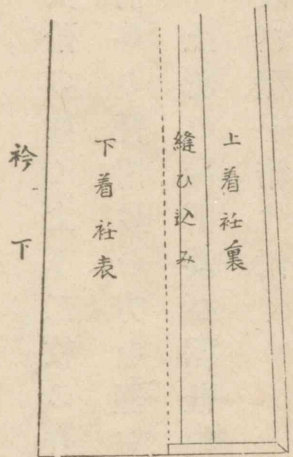 上着衽裏
縫ひ込み
下着衽表
衿下